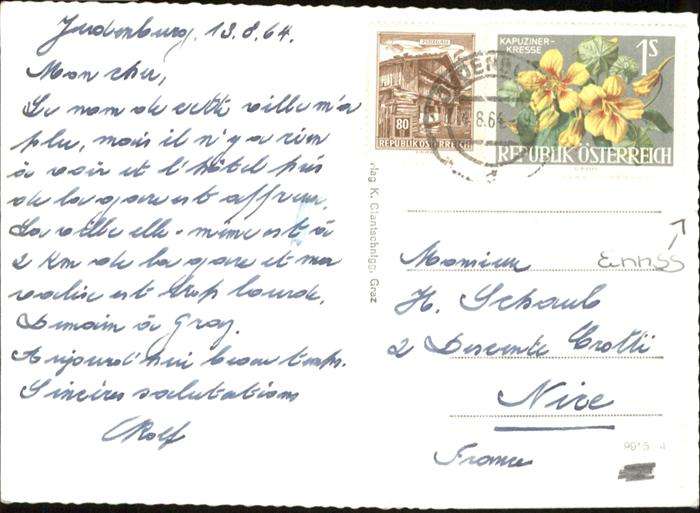 Judenburg, 13.8.64.
Mon cher,
Le nom de cette ville m'a
plu, mais il n'y a rien
à voir et l'hôtel près
de la gare est affreux.
La ville elle-même est à
2 km de la gare et ma
valise est trop lourde.
Demain à Graz.
Aujourd'hui beau temps.
Sincères salutations
Rolf
80
REPUBLIK ÖSTERREICH
KAPUZINER-
KRESSE
1S
REPUBLIK ÖSTERREICH
8.64
Verlag K. Ciantschnigg, Graz
Monsieur
Ennss
H. Schaub
2 Descente Crotti
Nice
France